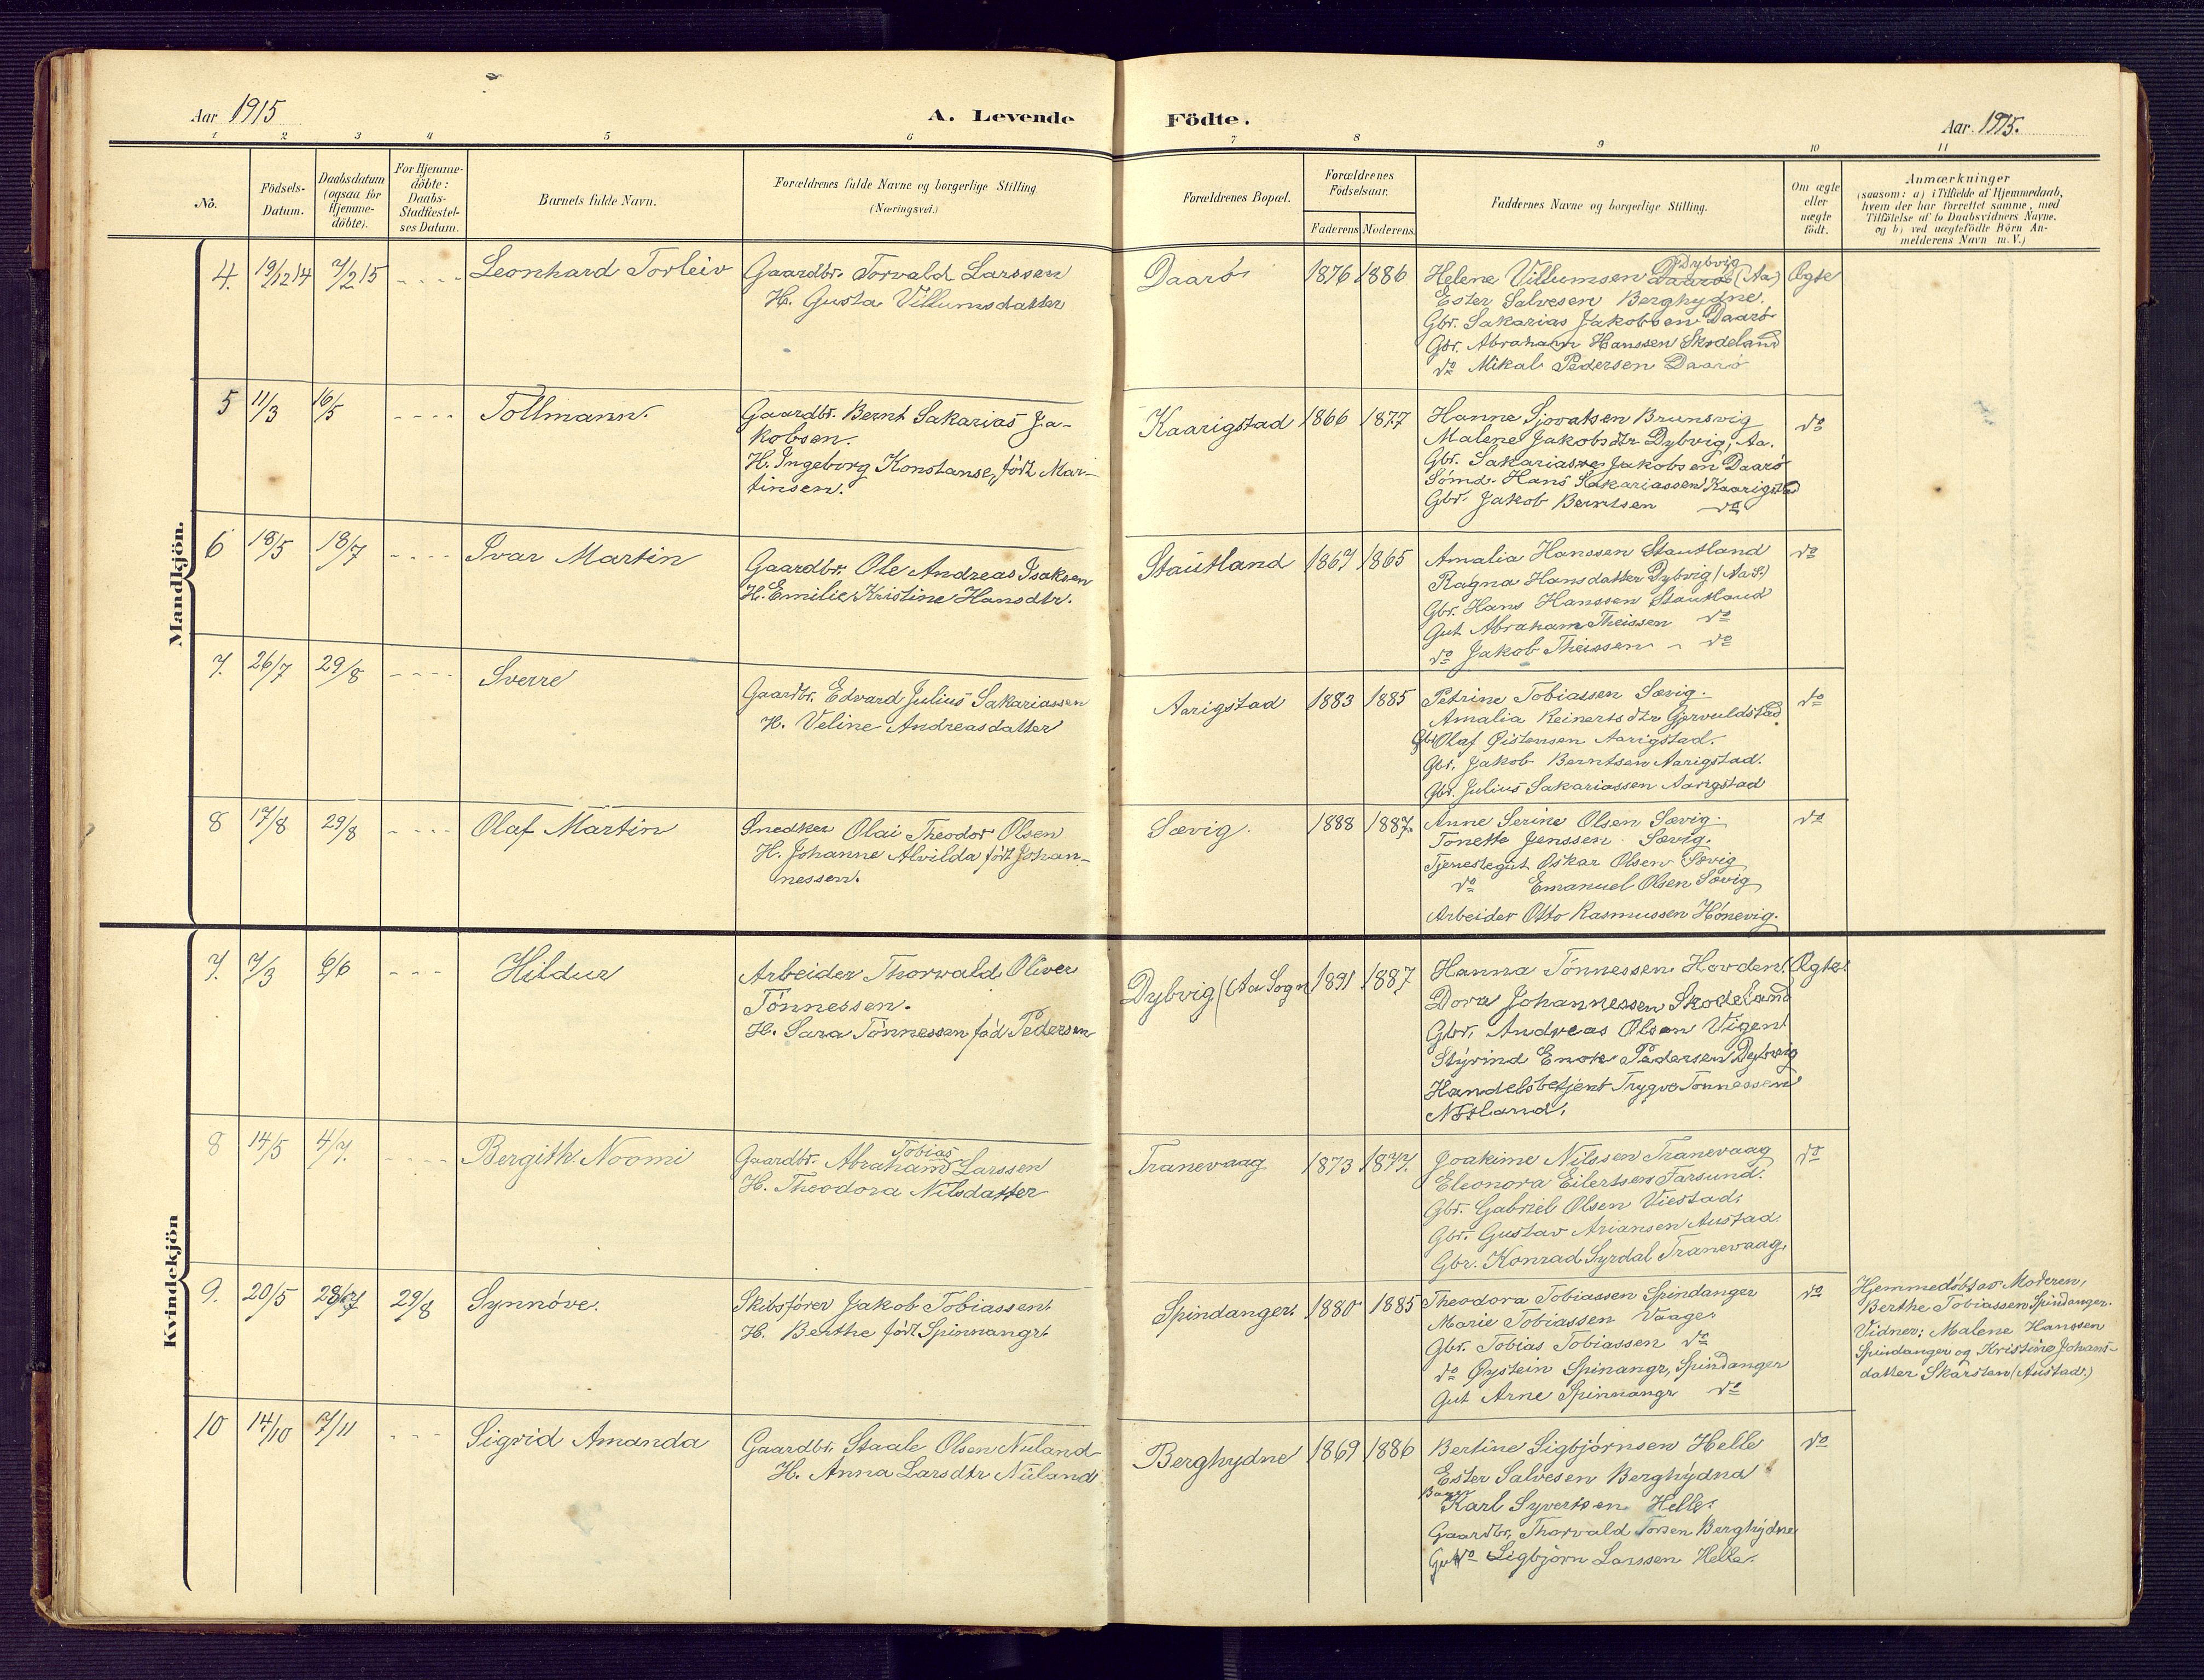 Aar 1915
A. Levende
Födte.
Aar 1915.
1 2 3 4 5 6 7 8 9 10 11
No.
Födsels-
Datum.
Daabsdatum
(ogsaa for
Hjemme-
döbte).
For Hjemme-
döbte:
Daabs-
Stadfæstel-
ses Datum.
Barnets fulde Navn.
Forældrenes fulde Navne og borgerlige Stilling.
(Næringsvei.)
Forældrenes Bopæl.
Forældrenes
Födselsaar.
Faderens Moderens.
Faddernes Navne og borgerlige Stilling.
Om ægte
eller
uægte
födt.
Anmærkninger
(saasom: a) i Tilfælde af Hjemmedaab,
hvem der har forrettet samme, med
Tilföielse af to Daabsvidners Navne.
og b) ved uægtefödte Börn An-
melderens Navn m. V.)
Mandkjön.
4. 19/12 14 7/2 15 - - - - Leonhard Torleiv
Gaardbr. Torvald Larssen
H. Gusta Villumsdatter
Daarö 1876 1886
Dybvig
Helene Villumsen Daarö (Aa)
Ester Salvesen Berghydne.
Gbr. Sakarias Jakobsen Daarö
Gbr. Abraham Hanssen Skodeland
do Mikal Pedersen Daarö
Ægte
5 11/3 16/5 - - - - Tollmann.
Gaardbr. Bernt Sakarias Ja-
kobsen.
H. Ingeborg Konstanse, født Mar-
tinsen.
Kaarigstad 1866 1877
Hanne Sjovatsen Brunsvig
Malene Jakobsdtr Dybvig, Aa.
Gbr. Sakarias Jakobsen Daarö
Sömd. Hans Sakariassen Kaarigstad
Gbr. Jakob Berntsen do
do
6 18/5 18/7 - - - - Ivar Martin
Gaardbr. Ole Andreas Isaksen
H. Emilie Kristine Hansdtr.
Stautland 1867 1865
Amalia Hanssen Stautland
Ragna Hansdatter Dybvig (Aa S.)
Gbr. Hans Hanssen Stautland
Gut Abraham Theissen do
do Jakob Theissen - do
do
7. 26/7 29/8 - - - - Sverre
Gaardbr. Edvard Julius Sakariassen
H. Veline Andreasdatter
Aarigstad 1883 1885
Petrine Tobiassen Sævig.
Amalia Reinertsdtr Gjervoldstad.
Gbr Olaf Øistensen Aarigstad.
Gbr. Jakob Berntsen Aarigstad.
Gbr. Julius Sakariassen Aarigstad
do
8 17/8 29/8 - - - - Olaf Martin
Snedker Olai Theodor Olsen
H. Johanne Alvilda født Johan-
nessen.
Sævig. 1888 1887.
Anne Serine Olsen Sævig.
Tonette Jenssen Sævig.
Tjenestegut Oskar Olsen Sævig
do Emanuel Olsen Sævig
Arbeider Otto Rasmussen Hönevig.
do
Kvindekjön
7. 7/3 6/6 - - - Hildur
Arbeider Thorvald Oliver
Tönnessen.
H. Sara Tönnessen fød Pedersen
Dybvig (Aa Sogn 1891 1887
Hanna Tönnessen Hovden.
Dora Johannessen Skodeland
Gbr. Andreas Olsen Vigen
Styrmd Enok Pedersen Dybvig
Handelsbetjent Trygve Tönnessen
Nötland.
Ægte.
8 14/5 4/7. - - - - Bergith Noomi
Tobias
Gaardbr. Abraham Larssen
H. Theodora Nilsdatter
Tranevaag 1873 1877.
Joakime Nilssen Tranevaag
Eleonora Eilertsen Farsund.
Gbr. Gabriel Olsen Viestad.
Gbr. Gustav Ariansen Austad.
Gbr. Konrad Syrdal Tranevaag.
do
9. 20/5 28/7 29/8 Synnöve.
Skibsförer Jakob Tobiassen
H. Berthe født Spinnangr.
Spindanger. 1880 1885
Theodora Tobiassen Spindanger
Marie Tobiassen Vaage.
Gbr. Tobias Tobiassen do
do Øystein Spinangr, Spindanger
Gut Arne Spinnangr do
do
Hjemmedöbt av Moderen,
Berthe Tobiassen Spindanger.
Vidner: Malene Hanssen
Spindanger og Kristine Johans-
datter Skarsten (Austad.)
10 14/10 7/11 - - - Sigrid Amanda
Gaardbr. Staale Olsen Nuland
H. Anna Larsdtr Nuland
Berghydne 1869 1886
Bertine Sigbjörnsen Helle
Ester Salvesen Berghydna
Karl Syvertsen Helle.
Gaardbr. Thorvald Torsen Berghydne
Gut do Sigbjörn Larssen Helle.
do